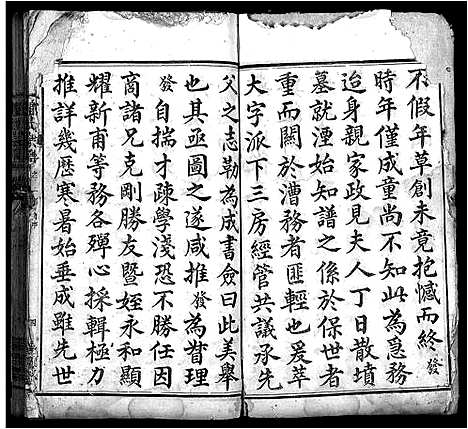 不假年草創未竟抱憾而終發
時年僅成童尚不知此為急務
迨身親家政見夫人丁日散墳
墓就湮始知譜之係於保世者
重而關於漕務者匪輕也爰萃
大字派下三房經管共議承先
父之志勒為成書僉曰此美舉
也其亟圖之遂咸推發為首理
發自揣才疎學淺恐不勝任因
商諸兄克剛勝友暨姪永和顯
耀新甫等務各殫心採輯極力
推詳幾歷寒暑始垂成雖先世